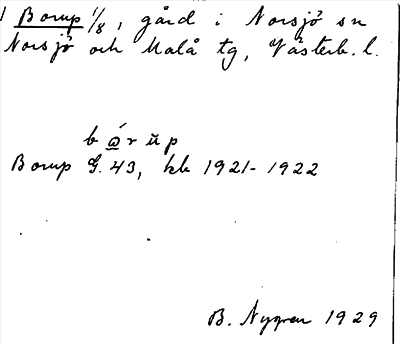 1 Borup 1/8, gård i Norsjö sn
Norsjö och Malå tg, Västerb. l.
bɷ́rŭp
Borup G. 43, kb 1921-1922
B. Nygren 1929